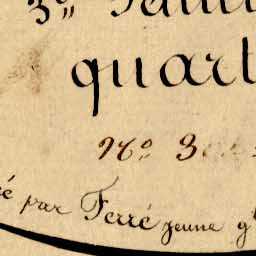 3º
quart
Nº 3
é par Ferré jeune g